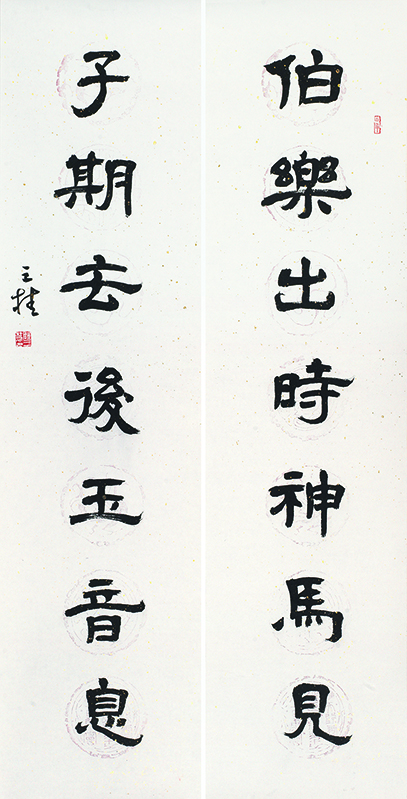 伯樂出時神馬見
子期去後玉音息